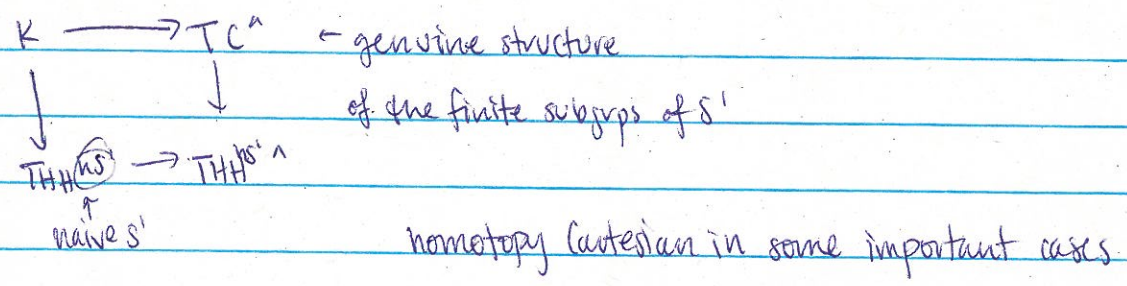 K → TC^ ← genuine structure
↓ ↓ of the finite subgrps of S¹
THH^hS¹ → THH^hS¹ ^
↑
naive S¹
homotopy Cartesian in some important cases.